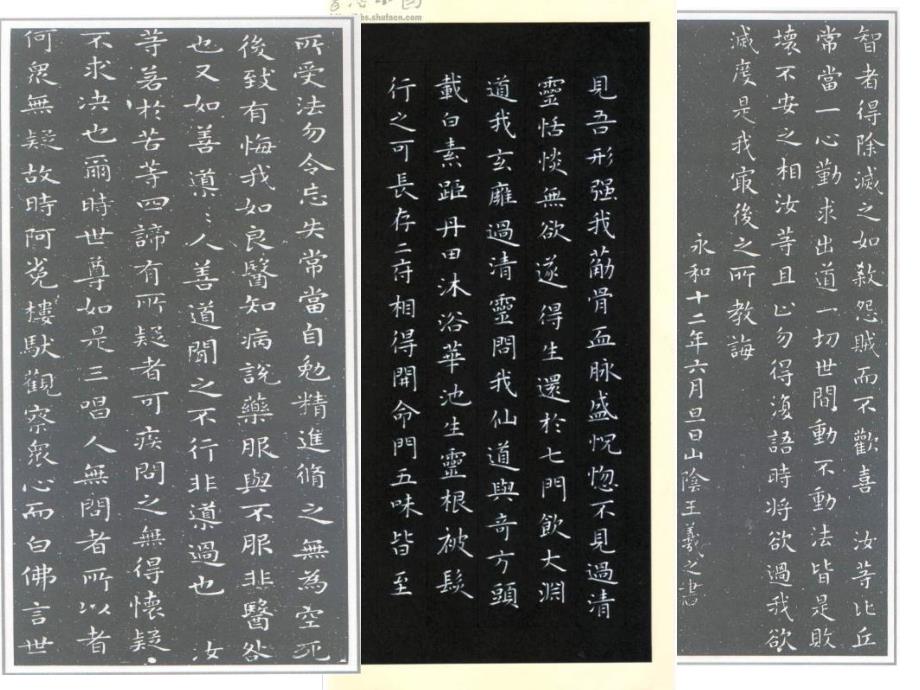 bbs.shufacn.com
所受法勿令忘失常當自勉精進脩之無為空死
後致有悔我如良醫知病說藥服與不服非醫咎
也又如善導〻人善道聞之不行非導過也 汝
等若於苦等四諦有所疑者可疾問之無得懷疑
不求决也爾時世尊如是三唱人無問者所以者
何眾無疑故時阿㝹樓馱觀察眾心而白佛言世
見吾形强我筋骨血脉盛怳惚不見過清
靈恬惔無欲遂得生還於七門飲大淵
道我玄雍過清靈問我仙道與奇方頭
載白素距丹田沐浴華池生靈根被髮
行之可長存二府相得開命門五味皆至
智者得除滅之如殺怨賊而不歡喜 汝等比丘
常當一心勤求出道一切世間動不動法皆是敗
壞不安之相汝等且止勿得復語時將欲過我欲
滅度是我最後之所教誨
永和十二年六月旦日山陰王羲之書